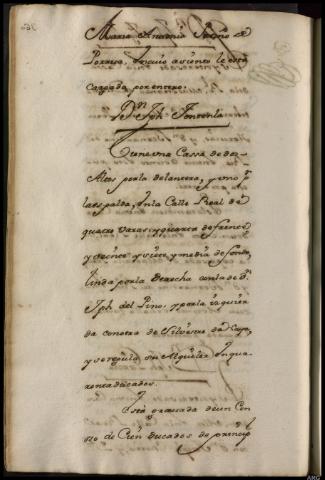 Maria Antonia Patiño de
Porrua, en cuio asiento le está
cargada por entero.
Dn. Jph Fontenla
Tiene una Cassa de dos
Altos por la delantera, y uno pr.
la espalda, en la Calle Real de
quatro varas y quarta de frente
y treinta y siete y media de fondo,
linda por la derecha con la de Dn.
Jph del Pino, y por la izquier
da con otra de Silvestre da Cuña,
y se reguló su Alquiler en qua
renta ducados.
Está gravada de un Cen
so de Cien ducados de principl.
AKG